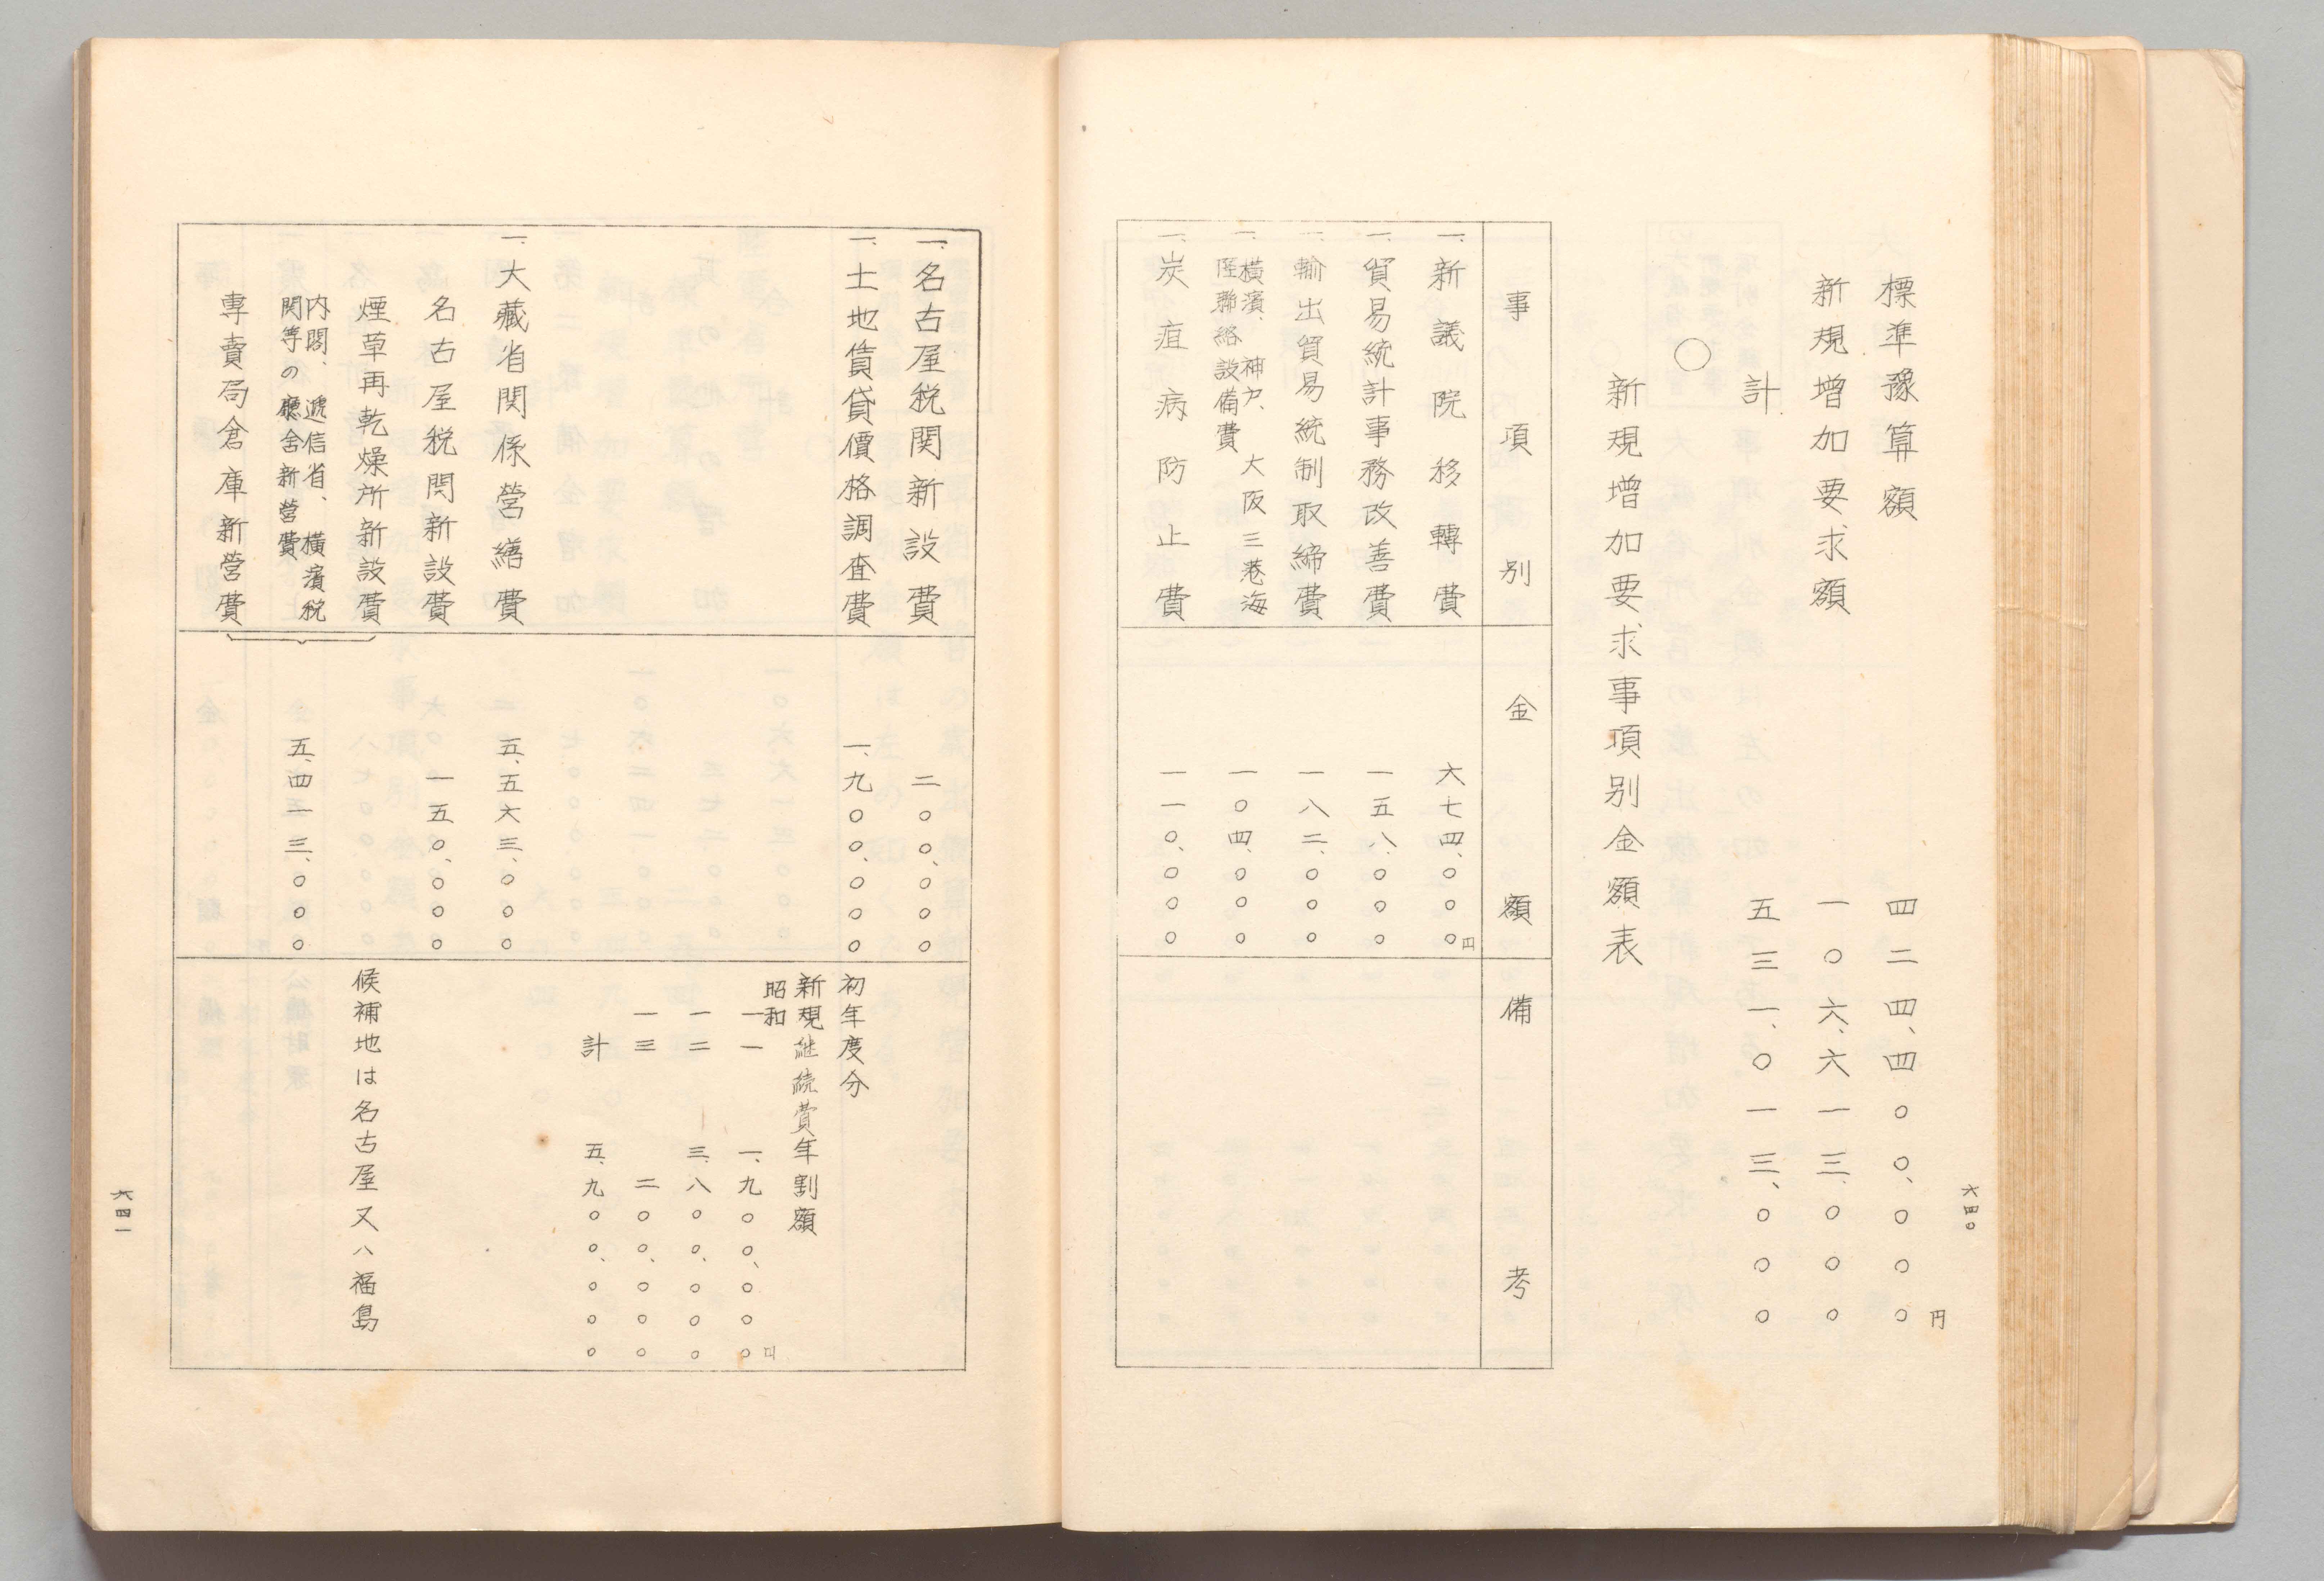 六四〇
標準豫算額 四二四、四〇〇、〇〇〇円
新規増加要求額 一〇六、六一三、〇〇〇
計 五三一、〇一三、〇〇〇
○
新規増加要求事項別金額表
事項別 金額 備考
一、新議院移轉費 六七四、〇〇〇円
一、貿易統計事務改善費 一五八、〇〇〇
一、輸出貿易統制取締費 一八二、〇〇〇
一、横濱、神戸、大阪三港海
陸聯絡設備費 一〇四、〇〇〇
一、炭疽病防止費 一一〇、〇〇〇
一、名古屋税関新設費 二〇〇、〇〇〇
一、土地賃貸價格調査費 一、九〇〇、〇〇〇 初年度分
新規継続費年割額
昭和
一一 一、九〇〇、〇〇〇円
一二 三、八〇〇、〇〇〇
一三 二〇〇、〇〇〇
計 五、九〇〇、〇〇〇
一、大藏省関係営繕費 五、五六三、〇〇〇
名古屋税関新設費 一五〇、〇〇〇
煙草再乾燥所新設費 候補地は名古屋又ハ福島
内閣、遞信省、横濱税
関等の廳舎新営費 五、四一三、〇〇〇
専賣局倉庫新営費
六四一